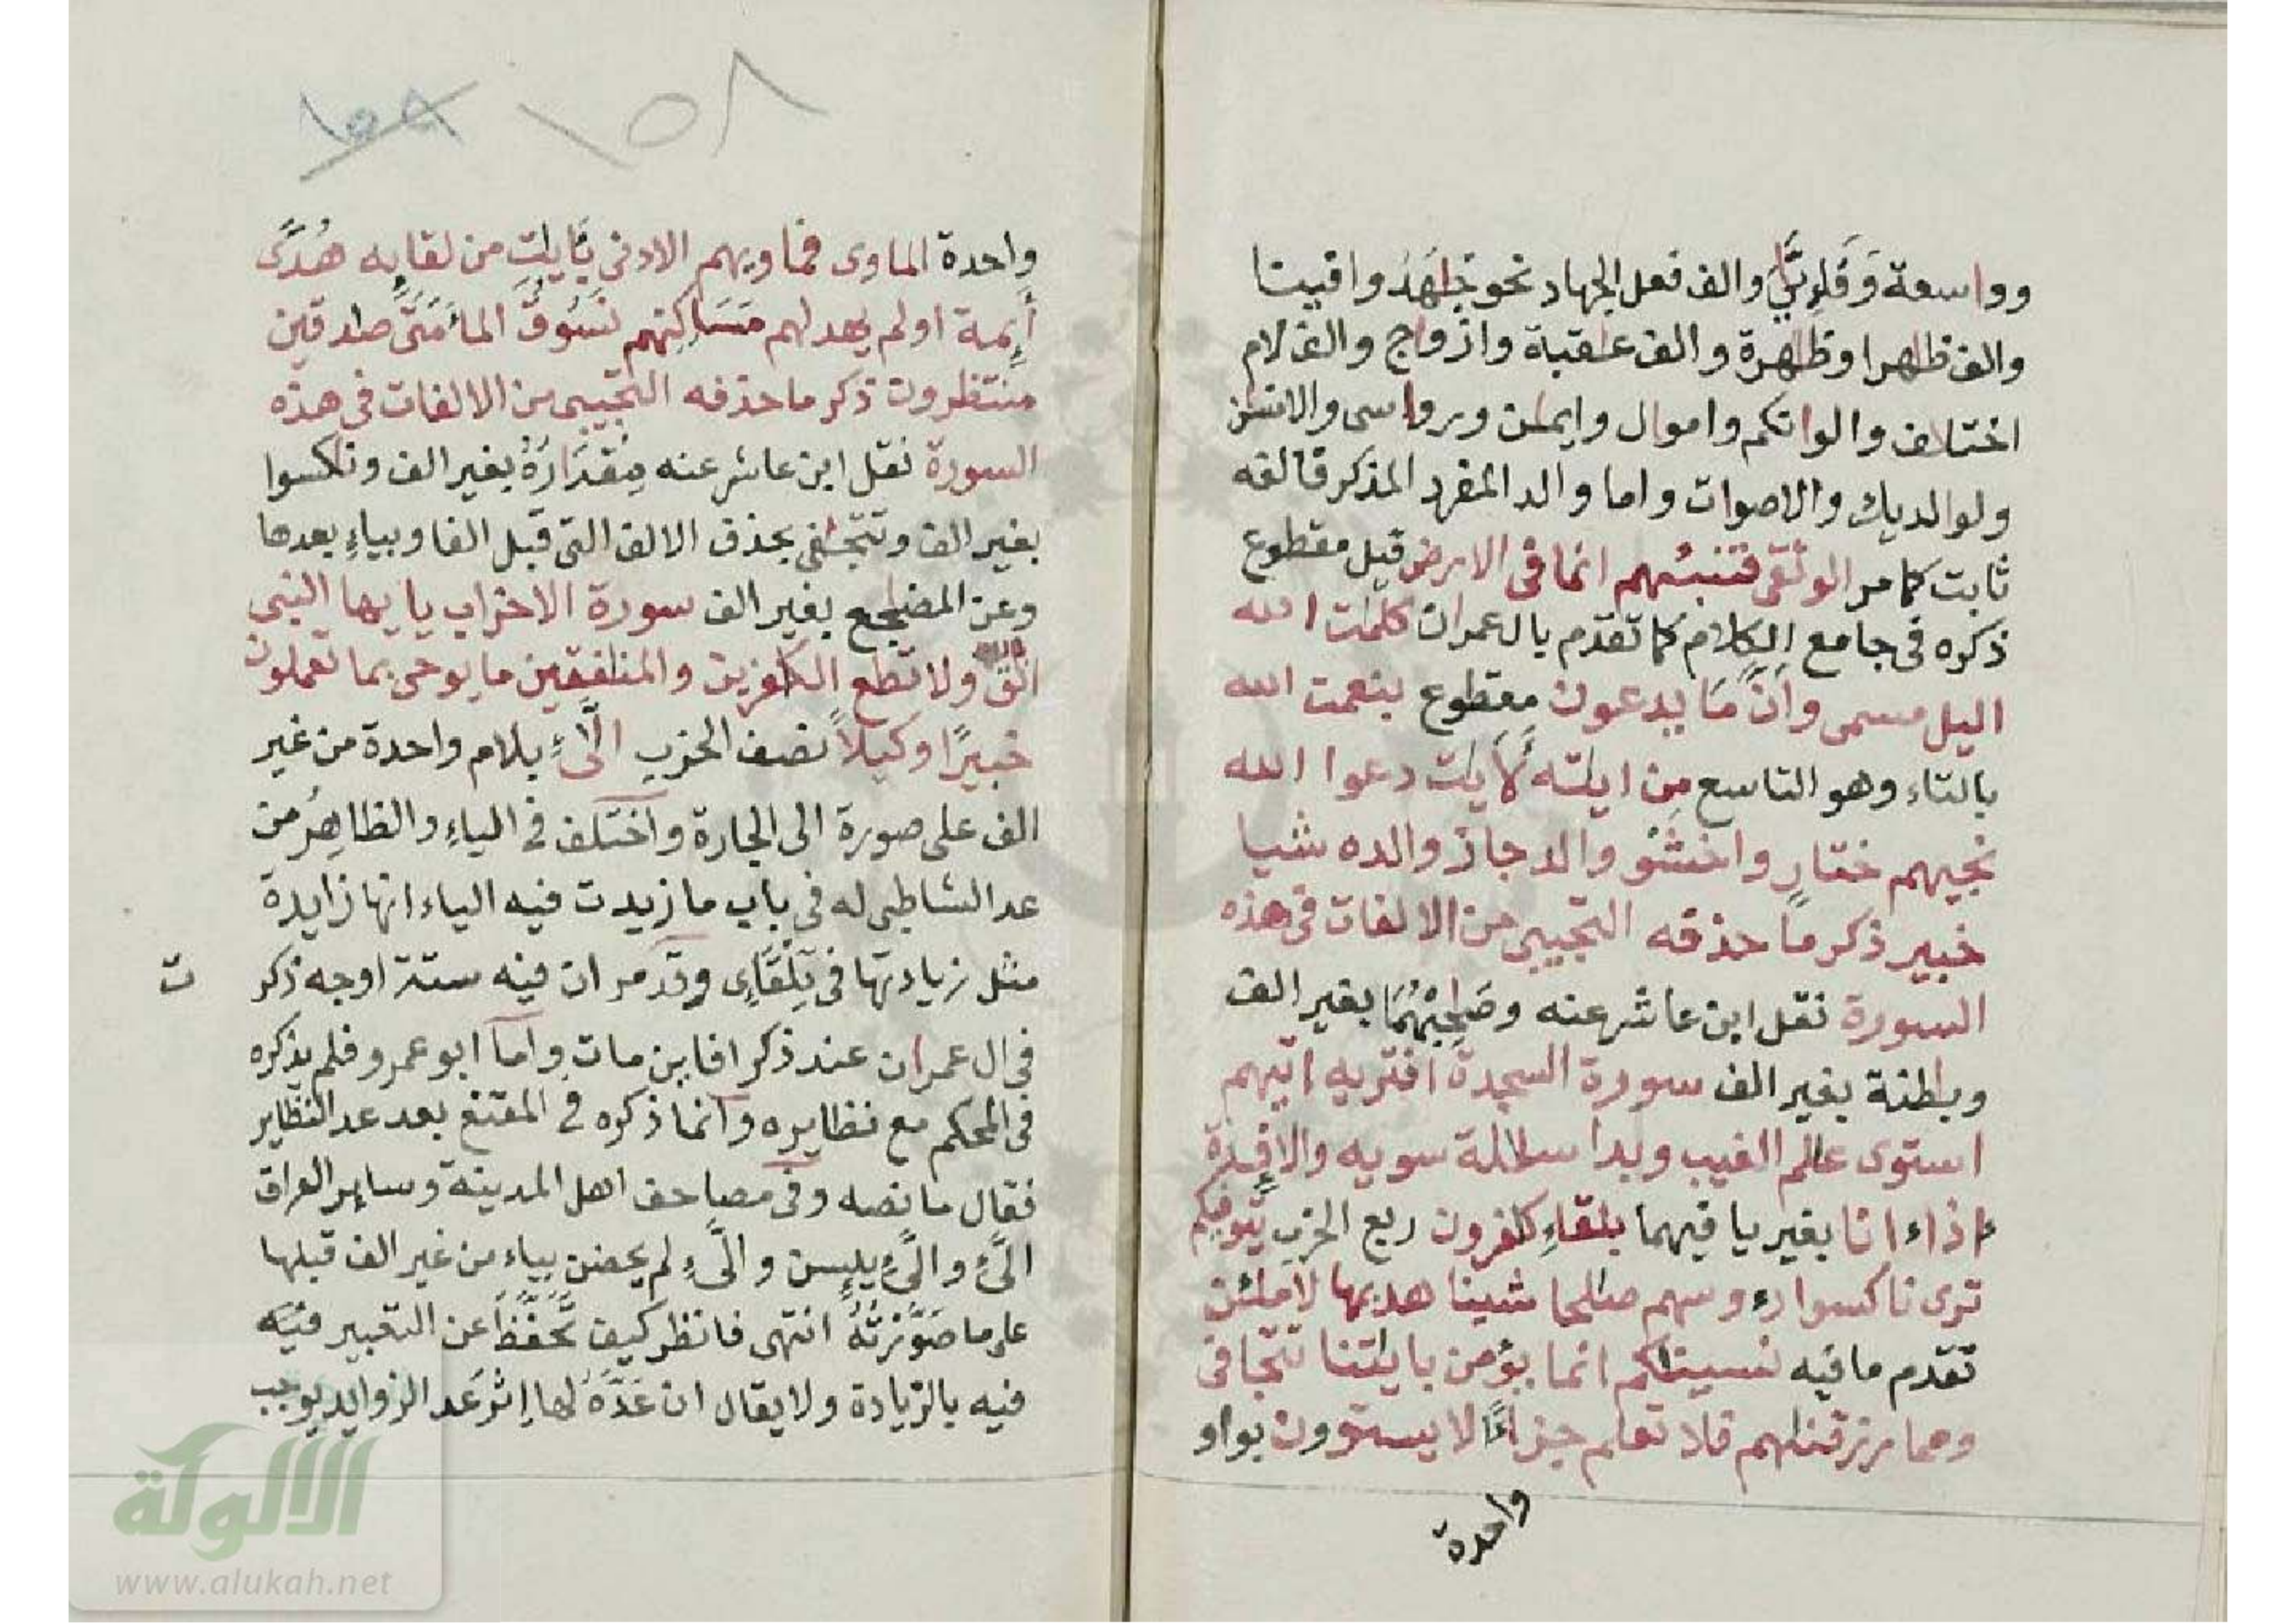 وواسعة وَقَٰرِبَيَّ والف فعل الجهاد نحو جَٰهَدُ واقيتا
والف ظٰهرا وظٰهرة والف عٰقبة وازواج والف لام
اختلاف والوانكم واموال وايمٰن ورواسى والانسٰن
ولوالديك والاصوات واما والد المفرد المذكر فالفه
ثابت كما مر الوثقى فننبئهم انما فى الارض قيل مقطوع
ذكره فى جامع الكلام كما تقدم بال عمران كلمٰت الله
اليل مسمى وأنّ مَا يدعون مقطوع بنعمت الله
بالتاء وهو التاسع من ايٰته لَأيٰت دعوا الله
نجيهم ختار واخشو والد جاز والده شيا
خبير ذكر ما حذفه التجيبى من الالفات فى هذه
السورة نقل ابن عاشر عنه وصَٰحِبْهُمَا بغير الف
وبٰطنة بغير الف سورة السجدة افتريه اتيهم
استوى عٰلم الغيب وبدا سلٰلة سويه والافـٕدة
اذاء انا بغير يا فيهما بلقاءِ كٰفرون ربع الحزب يتوفيكم
ترى ناكسوا رءوسهم صٰلحا شينا هديها لأملئن
تقدم ما فيه نسينٰكم انما يؤمن بايٰتنا تتجافى
ومما رزقنٰهم فلا تعلم جزاءً لا يستوون بواو
واحدة
١٥٨ ١٥٨
واحدة الماوى فماويهم الادنى بَِٔايٰتِ من لقايه هُدًى
أئمة اولم يهد لهم مَسَٰكِنهم نَسُوقُ المآءَ مَتَى صٰدقين
منتظرون ذكر ما حذفه التجيبى من الالفات فى هذه
السورة نقل ابن عاشر عنه مِقْدَارُهُ بغير الف وناكسوا
بغير الف وتتجٰفى بحذف الالف التى قبل الفا وبياءٍ بعدها
وعن المضٰجع بغير الف سورة الاحزاب يا يها النبى
اتق ولا تطع الكٰفرين والمنٰفقين ما يوحى بما تعملون
خبيرًا وكيلاً نصف الحزب الَّٰٔىِ بلام واحدة من غير
الف على صورة الى الجارة واختلف فى الياءِ والظاهِرُ من
عد الشاطبى له فى باب ما زيدت فيه الياء انها زايدة
مثل زيادتها فى تِلْقَاءِى وقد مر ان فيه ستة اوجه ذكر
ت
فى ال عمران عند ذكر افاين مات واما ابو عمرو فلم يذكره
فى المحكم مع نظايره وانما ذكره فى المقنع بعد عد النظاير
فقال ما نصه وفى مصاحف اهل المدينة وساير العراق
الَّٰٔى والَّٰٔى يٮٕسن والَّٰٔى لم يحضن بياء من غير الف قبلها
على ما صَوَّرْتُهُ انتهى فانظر كيف تَحَفَّظَ عن التعبير فيه
فيه بالزيادة ولا يقال ان عَدَّهُ لها إثْرَ عَد الزوايد يوجب
الألوكة
www.alukah.net